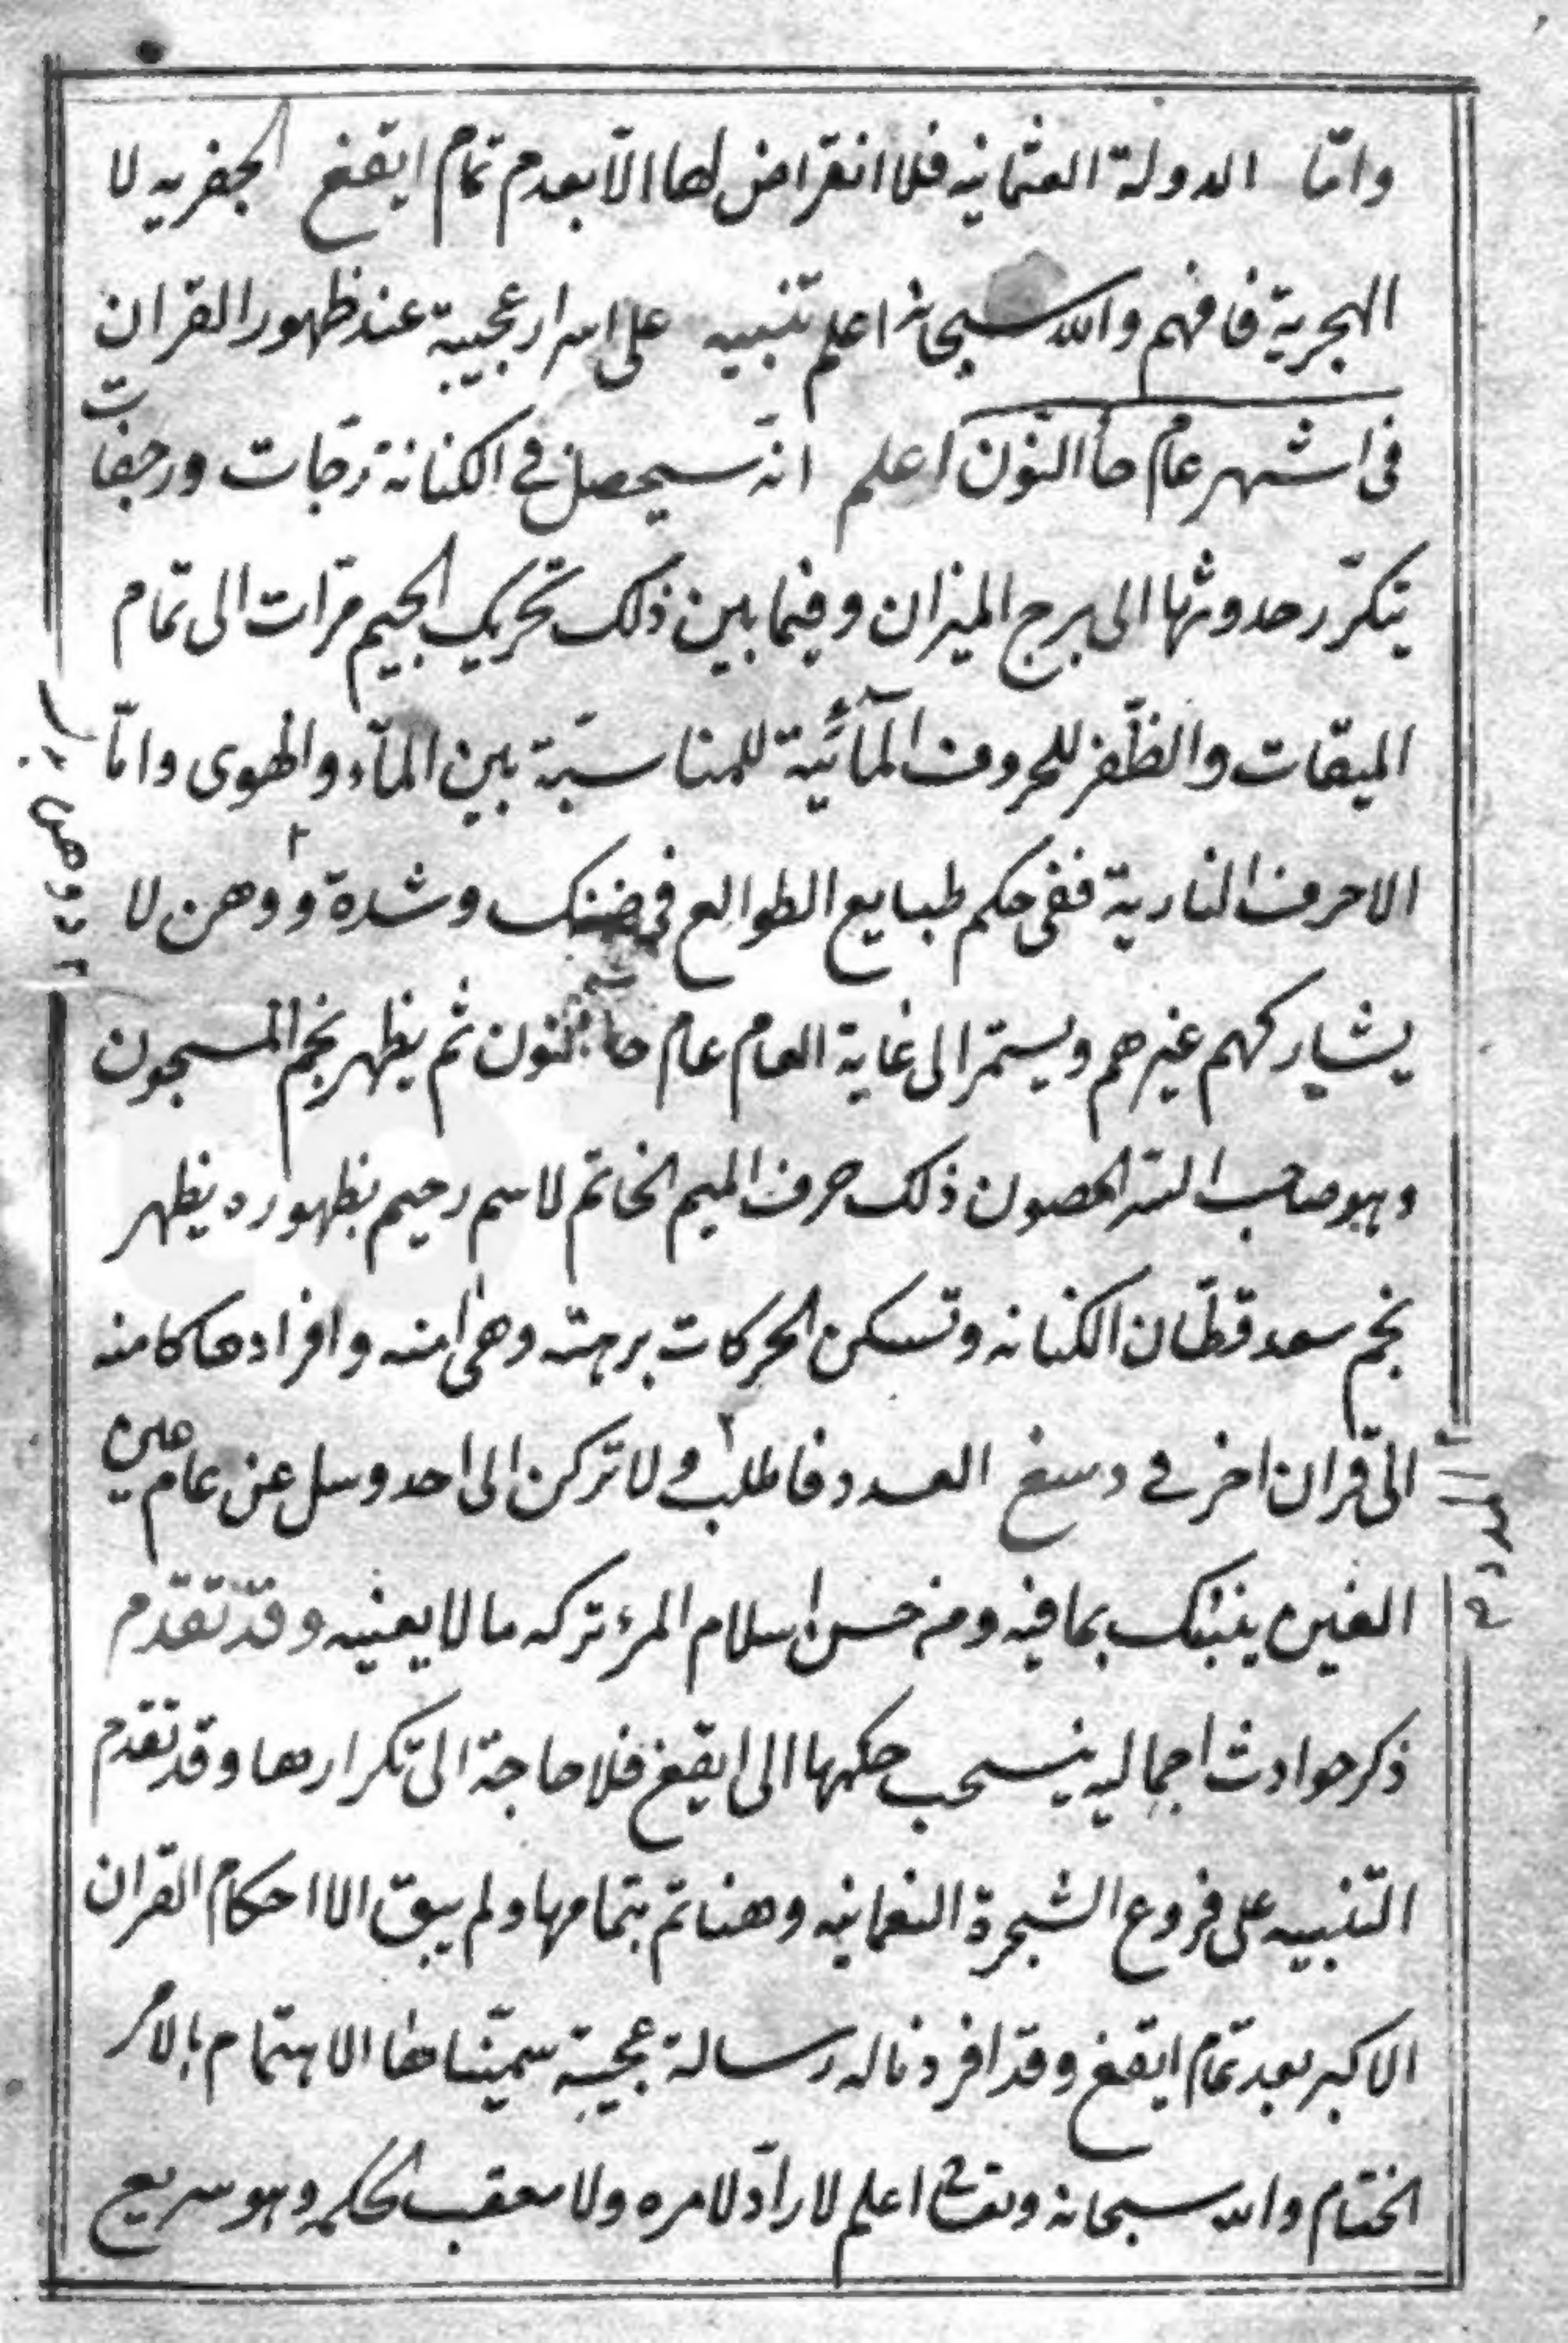 وامّا الدولة العثمانيه فلا انقراض لها الّا بعدم تمام ايقغ الجفريه لا
الهجرية فافهم والله سبحانه اعلم تنبيه على اسرار عجيبة عند ظهور القران
فى اشهر عام حا النّون اعلم انّه سيحصل في الكنانة رجّات ورجفات
يتكرّر حدوثها الى برج الميزان وفيما بين ذلك تحريك الجيم مرّات الى تمام
الميقات والظّفر للحروف المآئية للمناسبة بين المآء والهوى وامّا
الاحرف النارية ففى حكم طبايع الطوالع فى ضنك وشدة و ووهن لا
يشاركهم غيرهم ويستمرّ الى غاية العام عام حا النون ثم يظهر نجم المسجون
وهو صاحب السّر المصون ذلك حرف الميم الخاتم لاسم رحيم بظهوره يظهر
نجم سعد قطّان الكنانه وتسكن الحركات برهته وهى امنه وافرادها كامنه
الى قران اخر في دسغ العدد فاطلب ولا تركن الى احد وسل عن عام عين
الغين ينبئك بما فيه ومن حسن اسلام المرء تركه ما لا يعنيه وقد تقدم
ذكر حوادث اجماليه ينسحب حكمها الى ايقغ فلا حاجة الى تكرارها وقد تقدم
التنبيه على فروع الشجرة النعمانيه وهنا تم بتمامها ولم يبق الا احكام القران
الاكبر بعد تمام ايقغ وقد افردنا له رسالة عجيبة سمّيناها الاهتمام بالامر
الختام والله سبحانه وتعالى اعلم لا رادّ لامره ولا معقب لحكمه وهو سريع